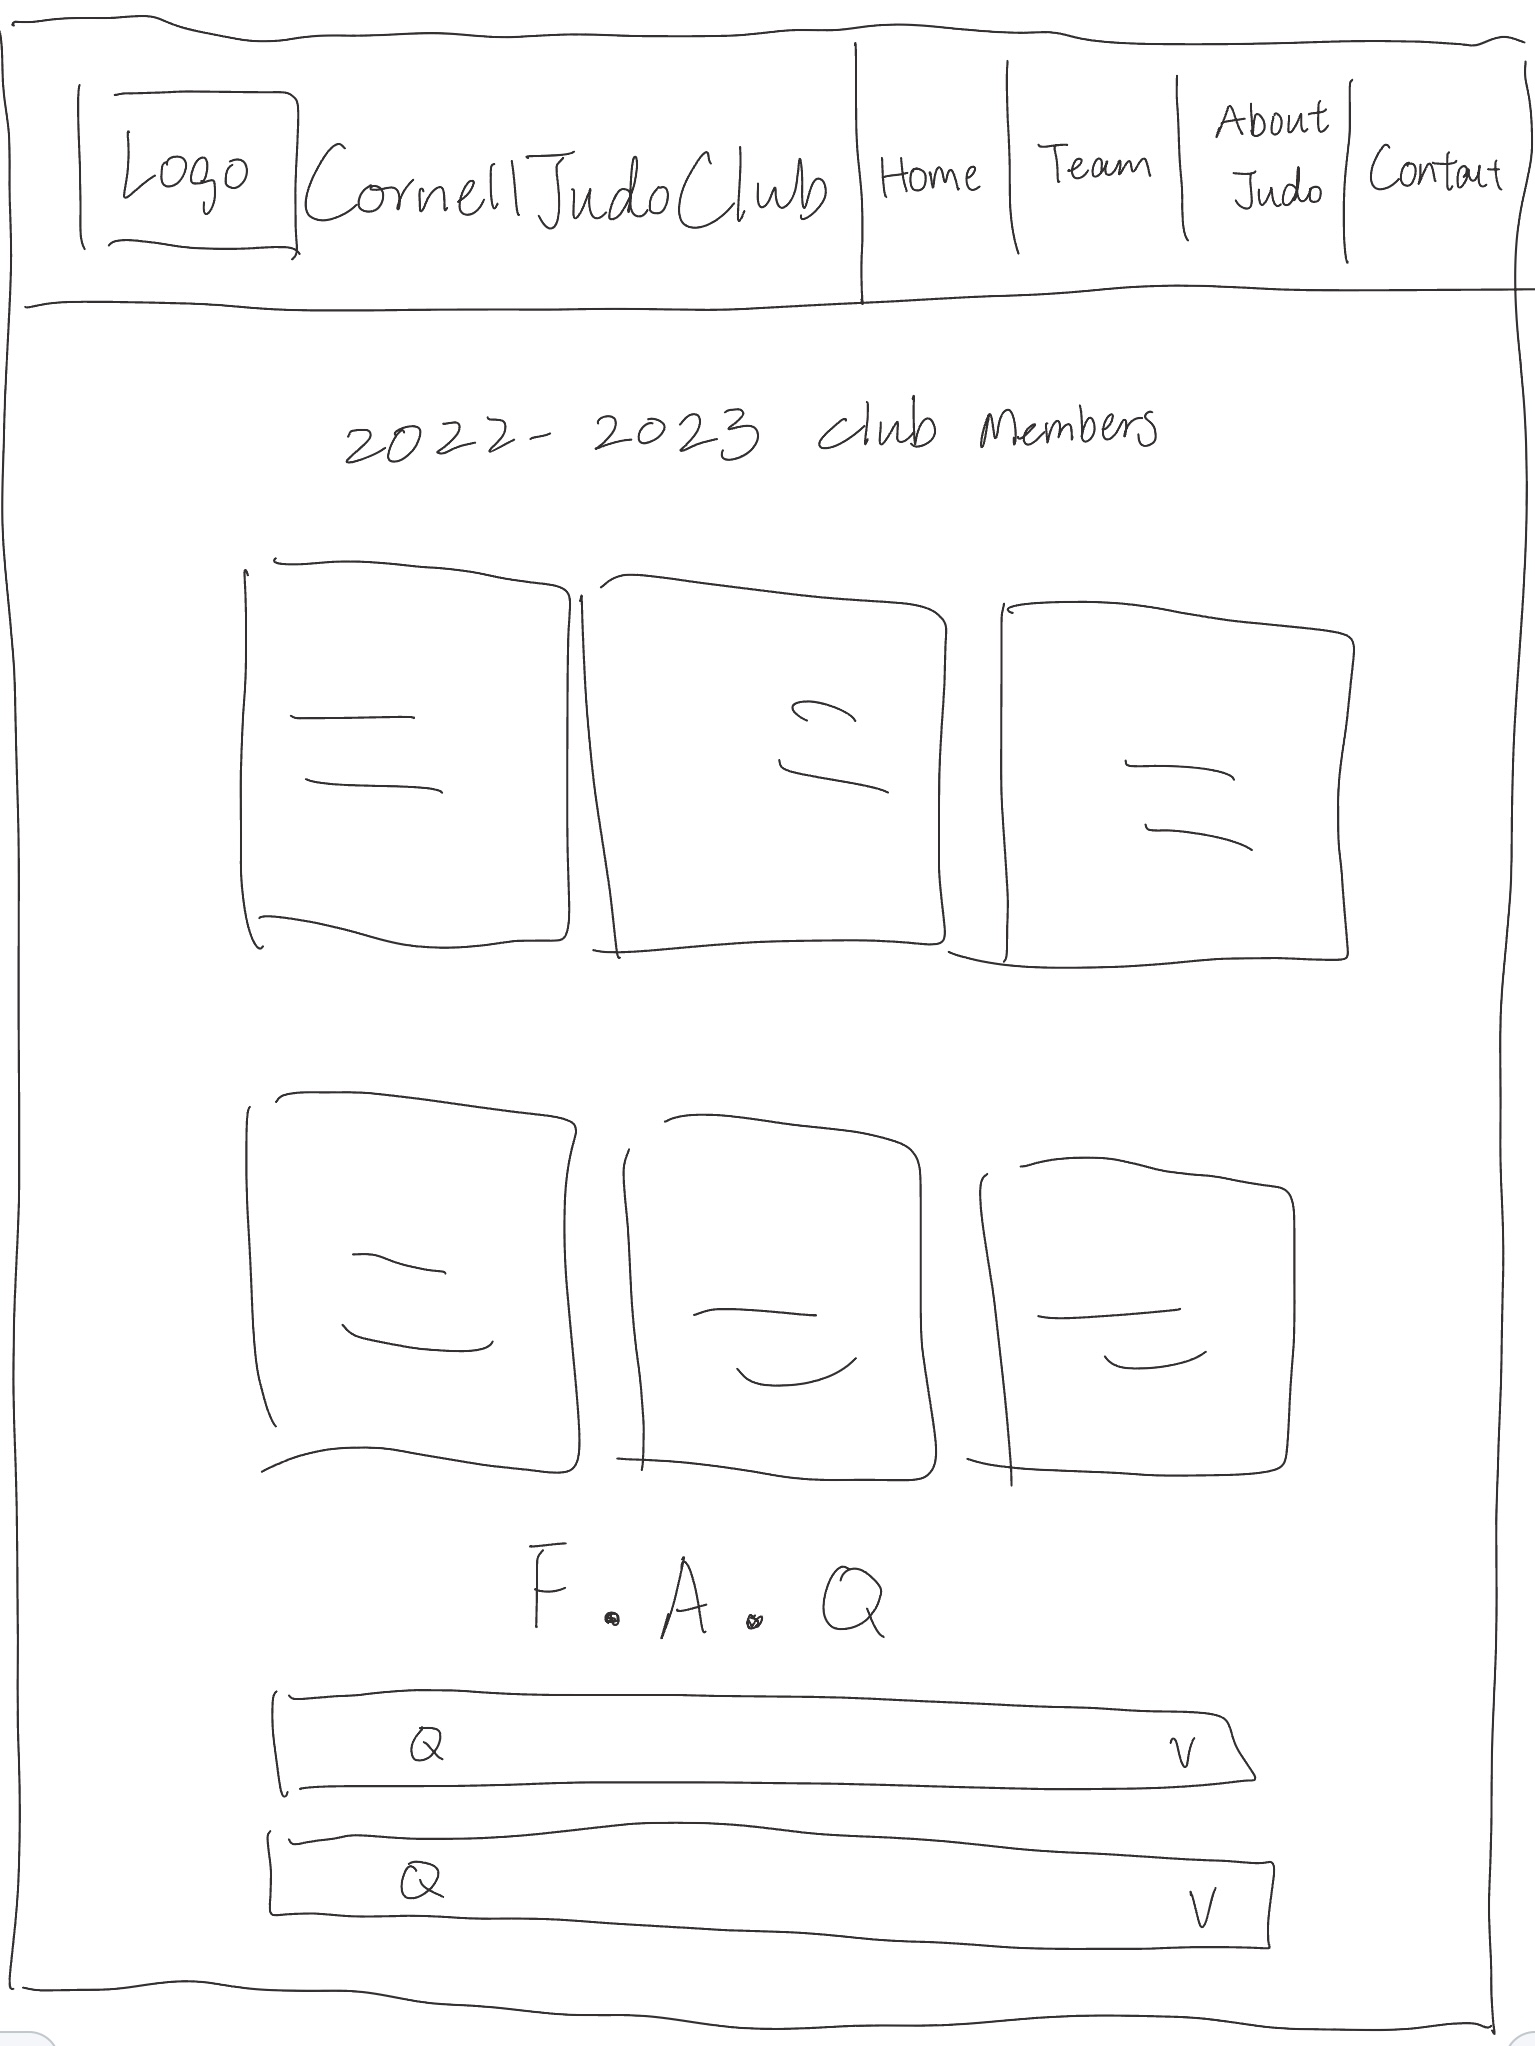 Logo
CornellJudoClub
Home
Team
About
Judo
Contact
2022-2023 Club Members
F.A.Q
Q V
Q V